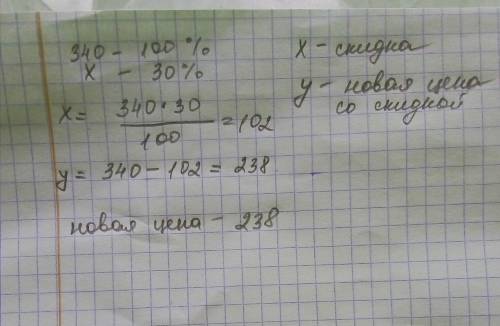 340 - 100%
x - 30%
x = 340·30 / 100 = 102
y = 340 - 102 = 238
новая цена - 238
x - скидка
y - новая цена
со скидкой